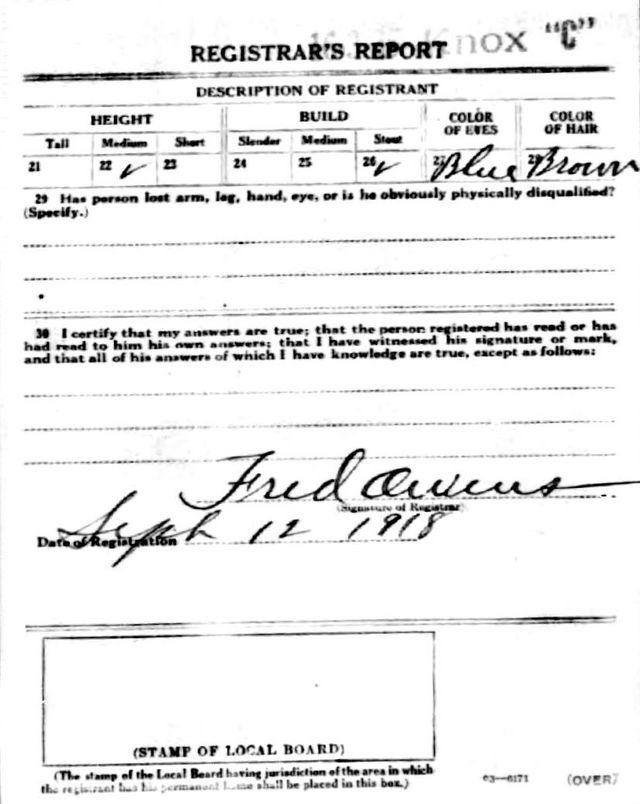 Knox "C"
REGISTRAR'S REPORT
DESCRIPTION OF REGISTRANT
HEIGHT BUILD COLOR OF EYES COLOR OF HAIR
Tall Medium Short Slender Medium Stout
21 22 ✓ 23 24 25 26 ✓ 27 Blue 28 Brown
29 Has person lost arm, leg, hand, eye, or is he obviously physically disqualified?
(Specify.)
30 I certify that my answers are true; that the person registered has read or has
had read to him his own answers; that I have witnessed his signature or mark,
and that all of his answers of which I have knowledge are true, except as follows:
Fred Owens
(Signature of Registrar)
Date of Registration Sept 12 1918
(STAMP OF LOCAL BOARD)
(The stamp of the Local Board having jurisdiction of the area in which
the registrant has his permanent home shall be placed in this box.)
63—6171 (OVER)